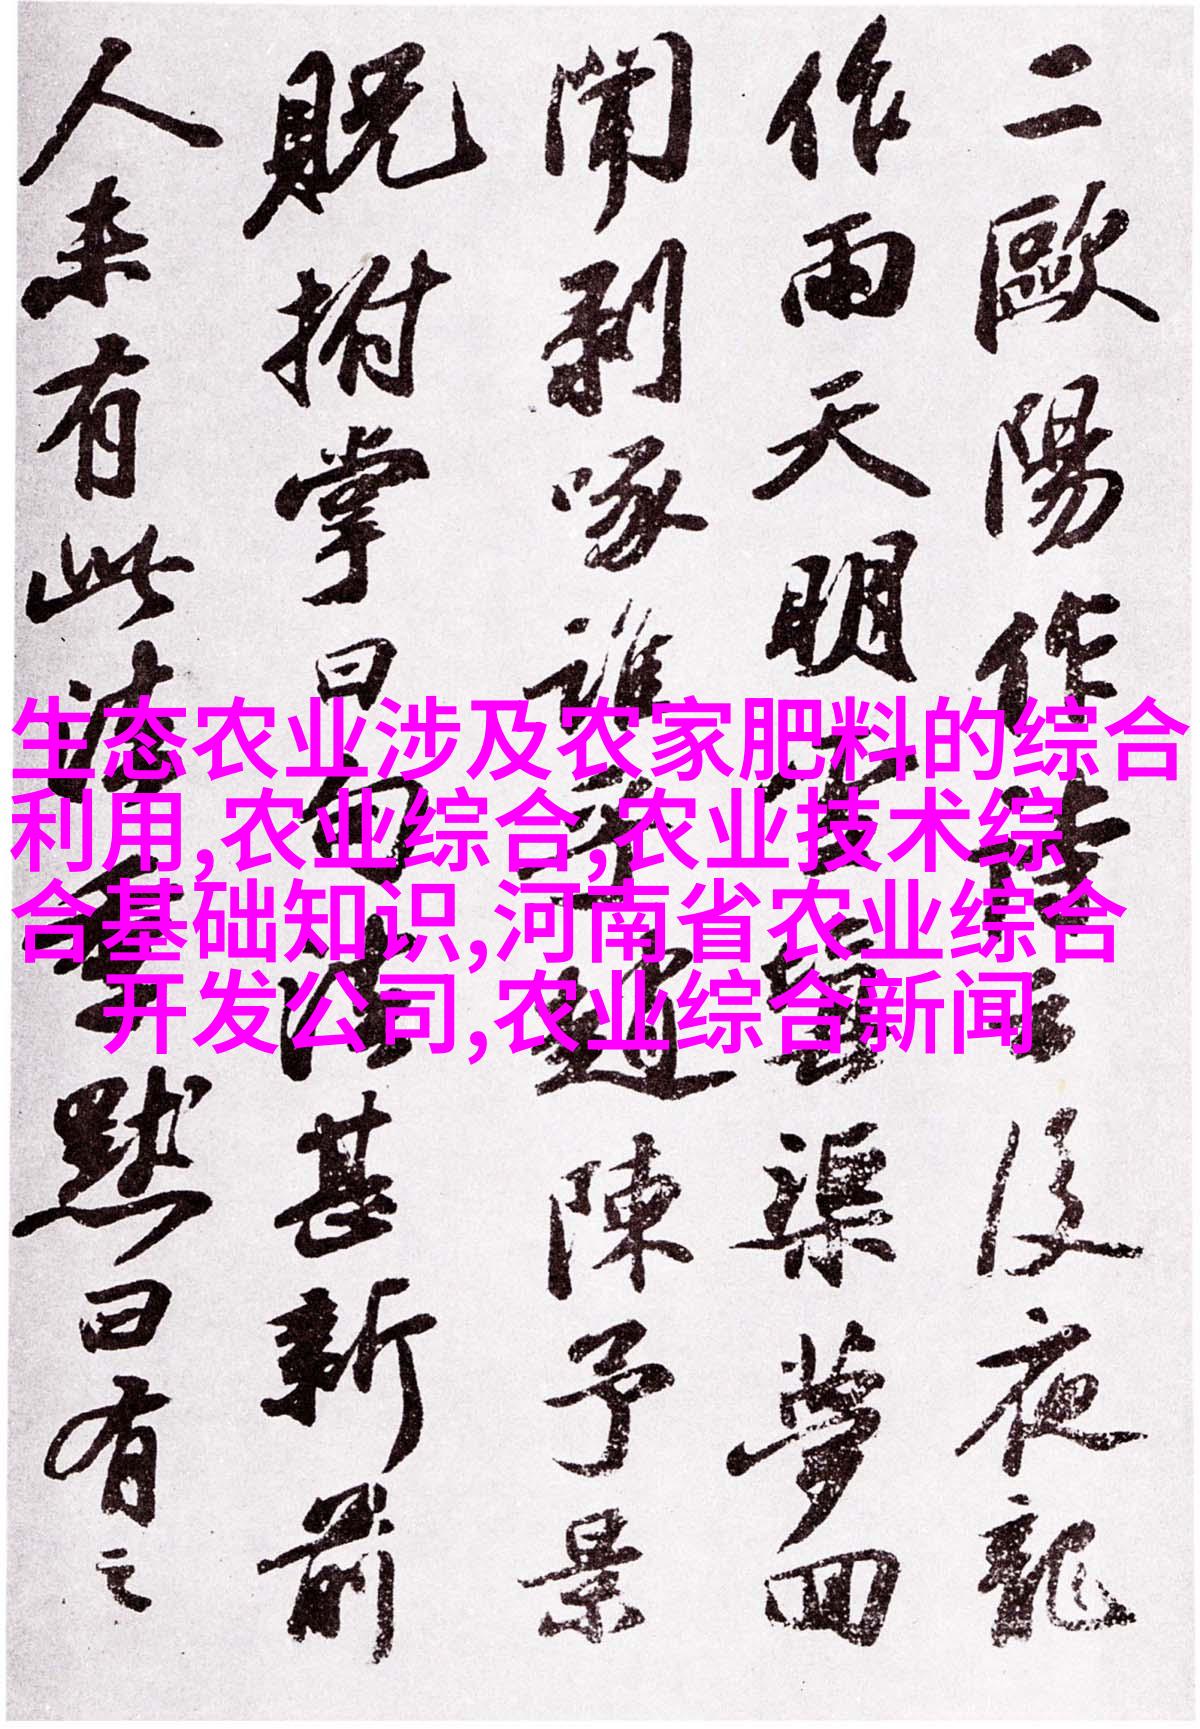 二歐陽作詩云後夜龍
作雨天明雪填渠夢回
聞剝啄誰乎趙陳予景
貺拊掌曰句法甚新前
人未有此法季默曰有之
生态农业涉及农家肥料的综合
利用,农业综合,农业技术综
合基础知识,河南省农业综合
开发公司,农业综合新闻